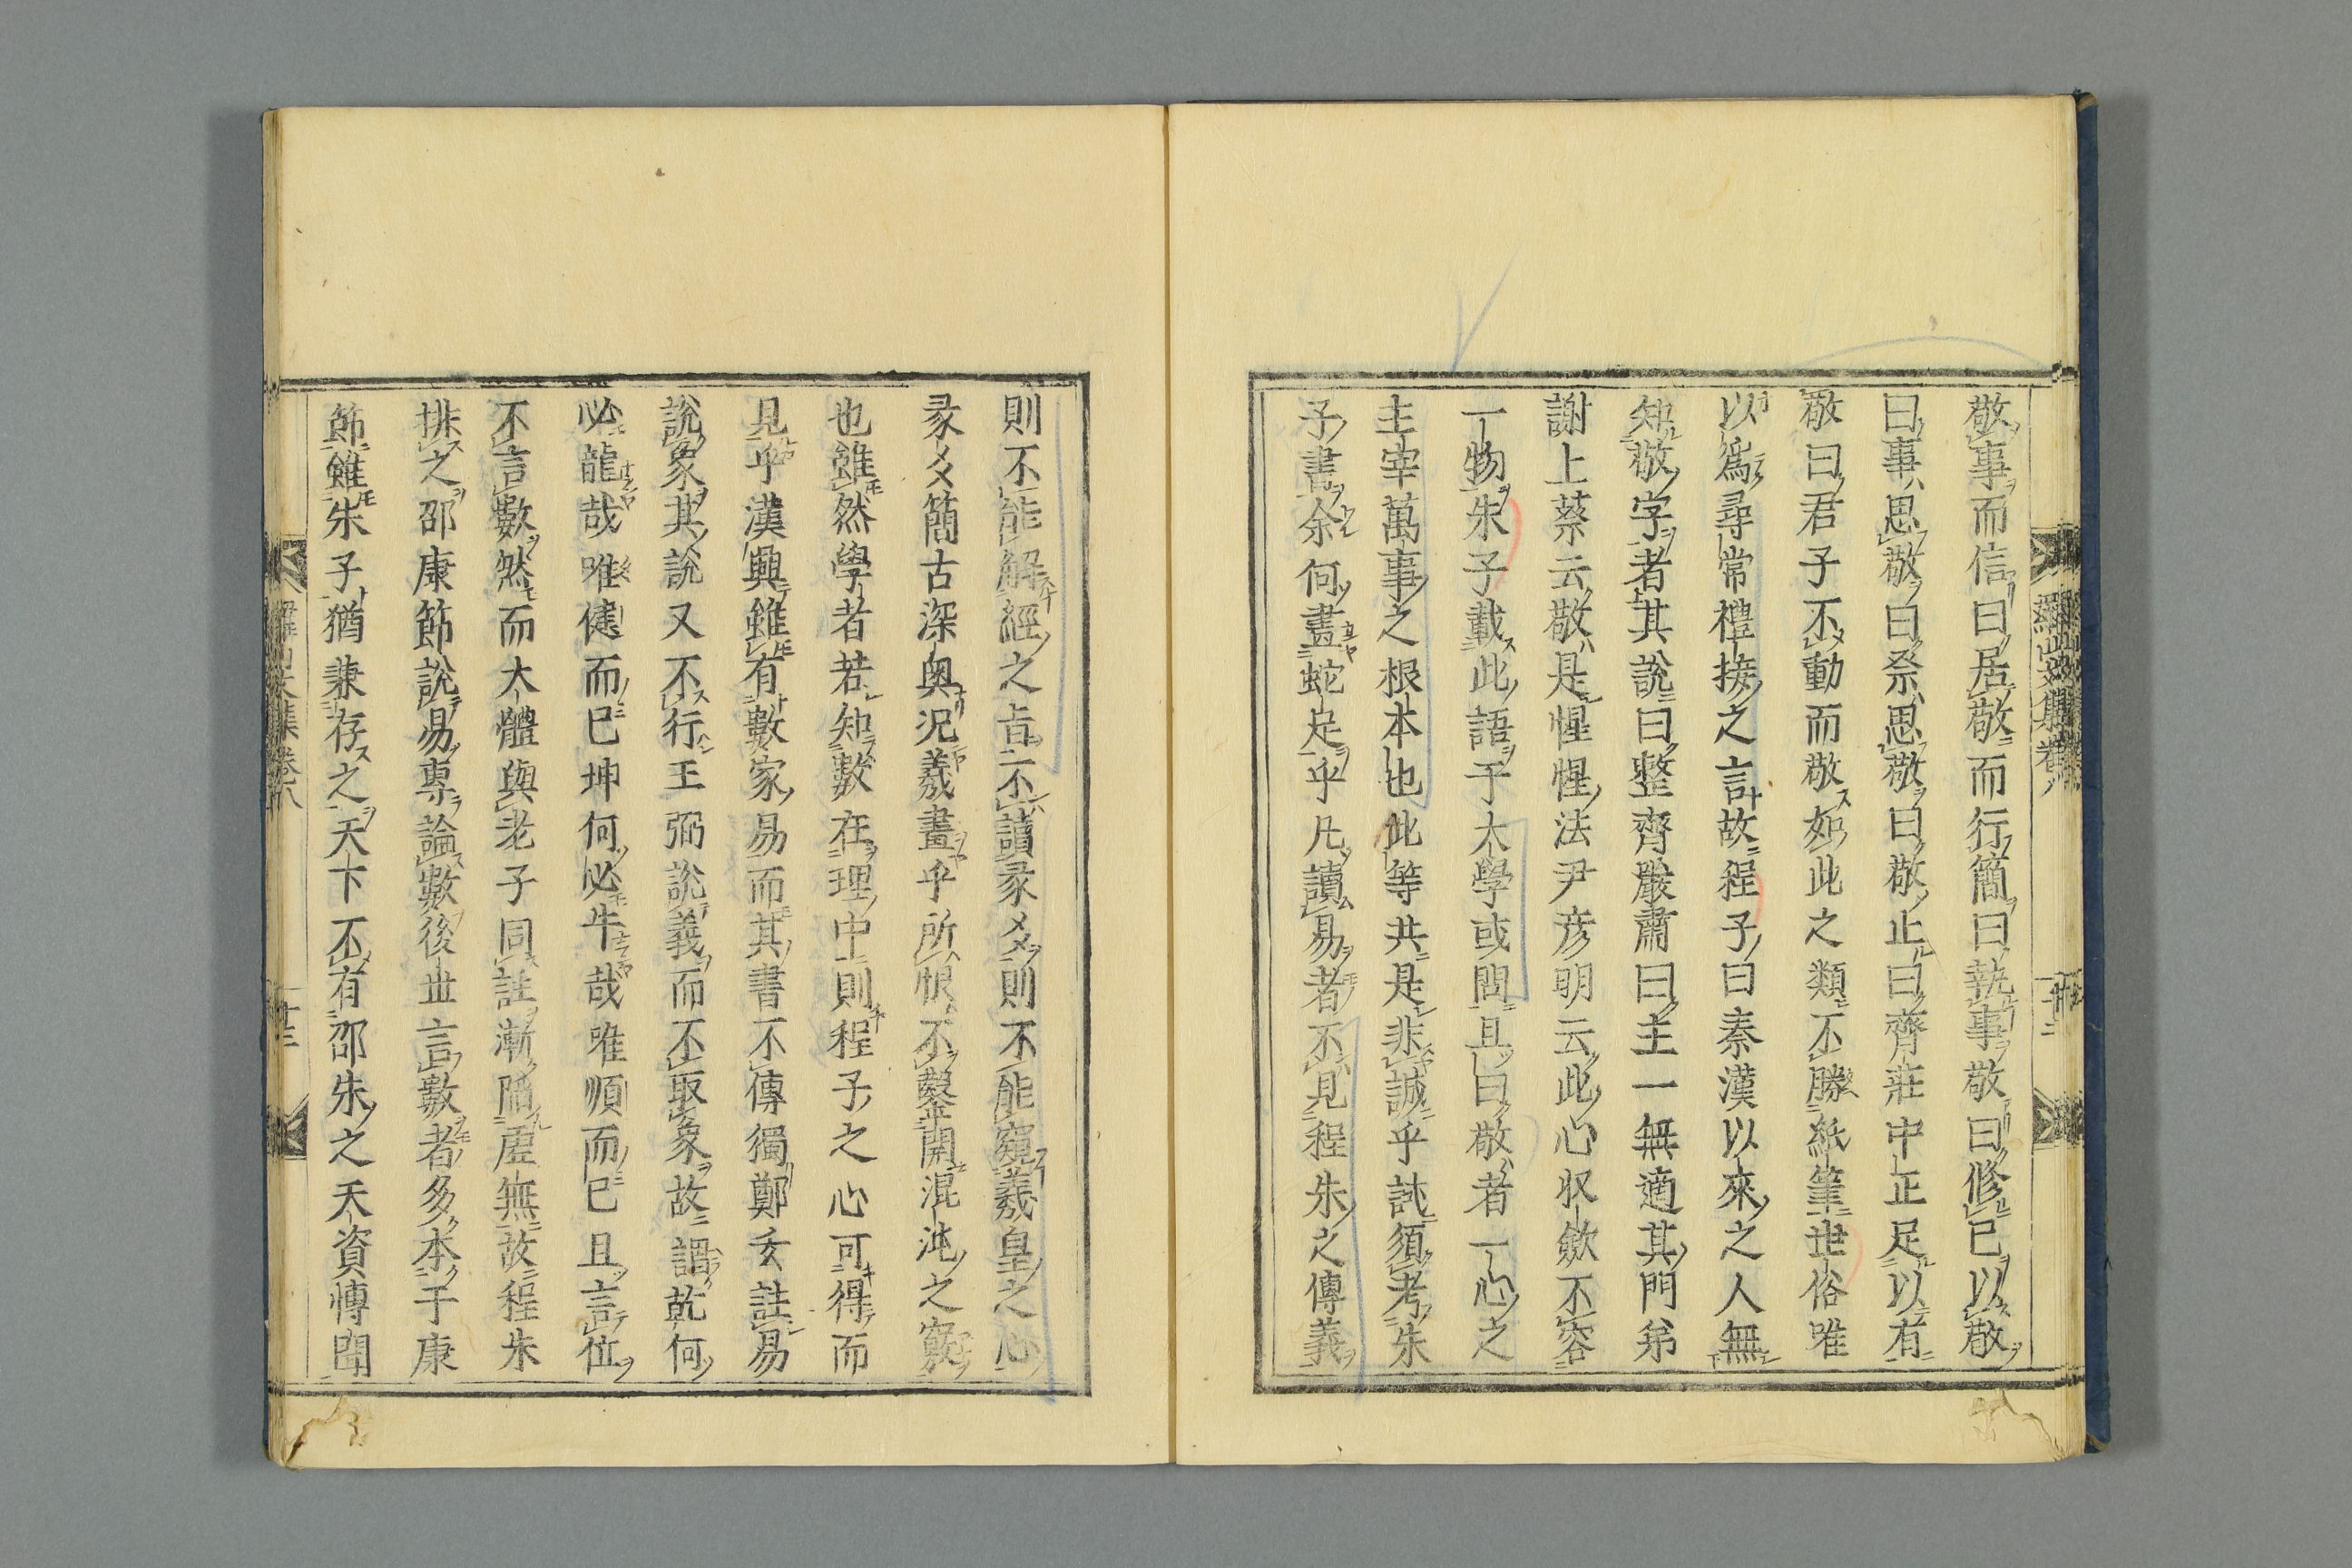 敬事而信曰居敬而行簡曰執事敬曰修己以敬
曰事思敬曰祭思敬曰敬止曰齊莊中正足以有
敬曰君子不動而敬如此之類不勝紙筆世俗唯
以爲尋常禮接之言故程子曰秦漢以來之人無
知敬字者其說曰整齊嚴肅曰主一無適其門弟
謝上蔡云敬是惺惺法尹彦明云此心收歛不容
一物朱子載此語于大學或問且曰敬者一心之
主宰萬事之根本也此等共是非誠乎誠須考朱
子書余何畫蛇足乎凡讀易者不見程朱之傳義
則不能解經之旨不讀彖爻則不能窺羲皇之心
彖爻簡古深奥况羲畫乎所恨不鑿開混沌之竅
也雖然學者若知數在理中則程子之心可得而
見乎漢興雖有數家易而其書不傳獨鄭玄註易
說象其說又不行王弼說義而不取象故謂乾何
必龍哉唯健而已坤何必牛哉唯順而已且言位
不言數然而大體與老子同註漸陥虛無故程朱
排之邵康節說易專論數後世言數者多本于康
節雖朱子猶兼存之天下不有邵朱之天資博聞
羅山文集卷八